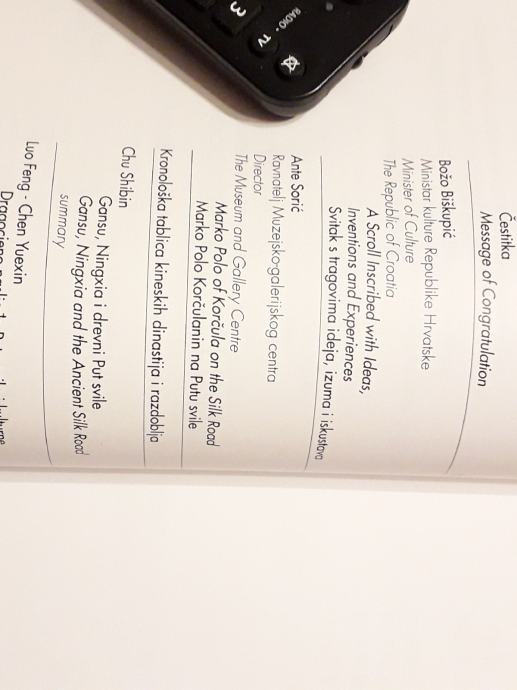 Čestitka
Message of Congratulation
Božo Biškupić
Ministar kulture Republike Hrvatske
Minister of Culture
The Republic of Croatia
A Scroll Inscribed with Ideas,
Inventions and Experiences
Svitak s tragovima ideja, izuma i iskustava
Ante Sorić
Ravnatelj Muzejsko-galerijskog centra
Director
The Museum and Gallery Centre
Marko Polo of Korčula on the Silk Road
Marko Polo Korčulanin na Putu svile
Kronološka tablica kineskih dinastija i razdoblja
Chu Shibin
Gansu, Ningxia i drevni Put svile
Gansu, Ningxia and the Ancient Silk Road
summary
Luo Feng - Chen Yuexin
RADIO · TV
3